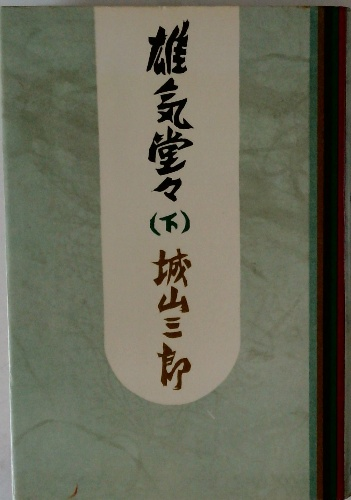 雄気堂々
(下)
城山三郎